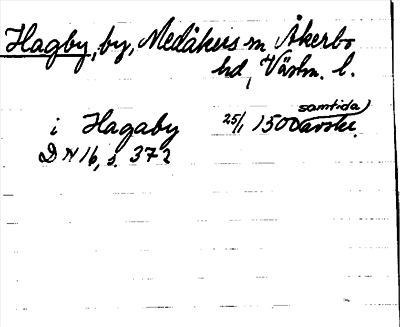 Hagby, by, Medåkers sn Åkerbo
hd, Västm. l.
samtida
i Hagaby 25/1 1500 avskr.
DN 16, s. 372